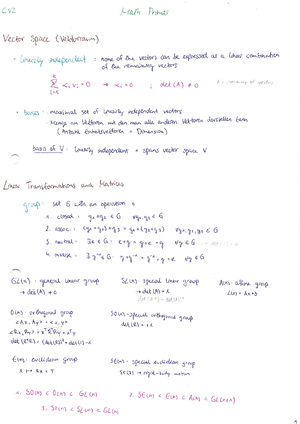 CV2
Math Primes
Vector Space (Vektorraum)
• linearly independent : none of the vectors can be expressed as a linear combination
of the remaining vectors
Σ αᵢvᵢ = 0 → αᵢ = 0 ; det(A) ≠ 0
• basis : maximal set of linearly independent vectors
- Menge an Vektoren mit den man alle anderen Vektoren darstellen kann
(Anzahl Einheitsvektoren = Dimension)
basis of V : linearly independent + spans vector space V
Linear Transformations and Matrices
group : set G with an operation ∘
1. closed : g₁∘g₂ ∈ G ∀g₁,g₂ ∈ G
2. assoc. : (g₁∘g₂)∘g₃ = g₁∘(g₂∘g₃) ∀g₁,g₂,g₃ ∈ G
3. neutral : ∃e ∈ G : e∘g = g∘e = g ∀g ∈ G
4. inverse : ∃g⁻¹ ∈ G : g∘g⁻¹ = g⁻¹∘g = e ∀g ∈ G
GL(n) : general linear group
→ det(A) ≠ 0
SL(n) : special linear group
→ det(A) = 1
A(n) : affine group
L(x) = Ax+b
O(n) : orthogonal group
<Rx,Ry> = <x,y>
<Rx,Ry> = xᵀRᵀRy = xᵀy
SO(n) : special orthogonal group
det(R) = +1
E(n) : euclidean group
x ↦ Rx + T
SE(n) : special euclidean group
SE(3) → rigid-body motion
1. SO(n) ⊂ O(n) ⊂ GL(n)
2. SE(n) ⊂ E(n) ⊂ A(n) ⊂ GL(n+1)
3. SO(n) ⊂ SL(n) ⊂ GL(n)